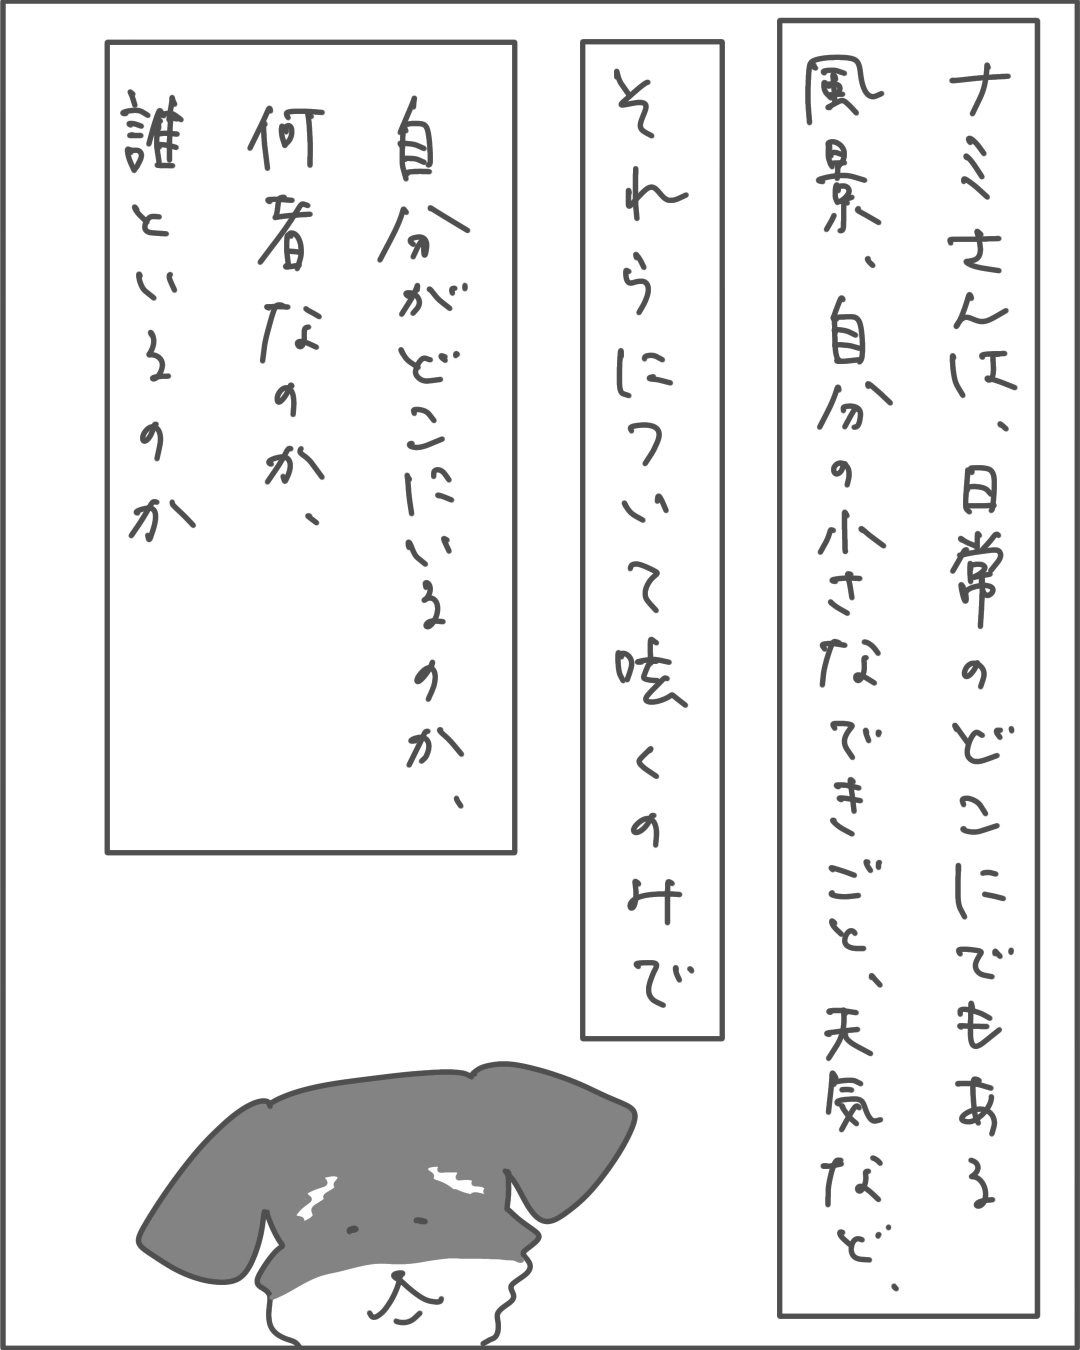 ナミさんは、日常のどこにでもある
風景、自分の小さなできごと、天気など、
それらについて呟くのみで
自分がどこにいるのか、
何者なのか、
誰といるのか